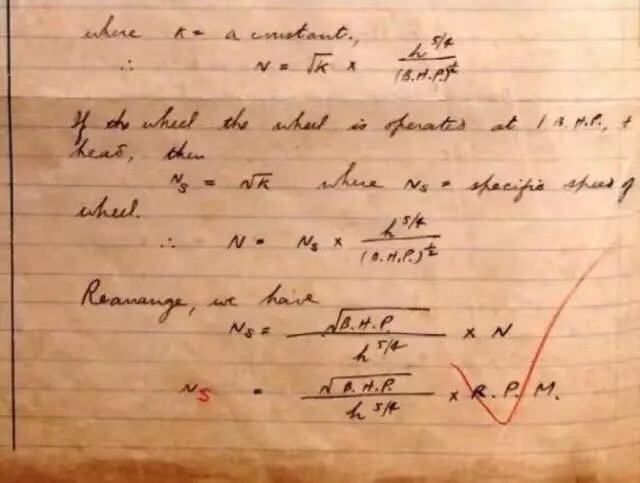 where K = a constant.,
∴ N = √K × h^5/4 / (B.H.P.)^½
If the wheel the wheel is operated at 1 B.H.P., +
head, then
Ns = √K where Ns = specific speed of
wheel.
∴ N = Ns × h^5/4 / (B.H.P.)^½
Rearrange, we have
Ns = √B.H.P. / h^5/4 × N
Ns = √B.H.P. / h^5/4 × R.P.M.